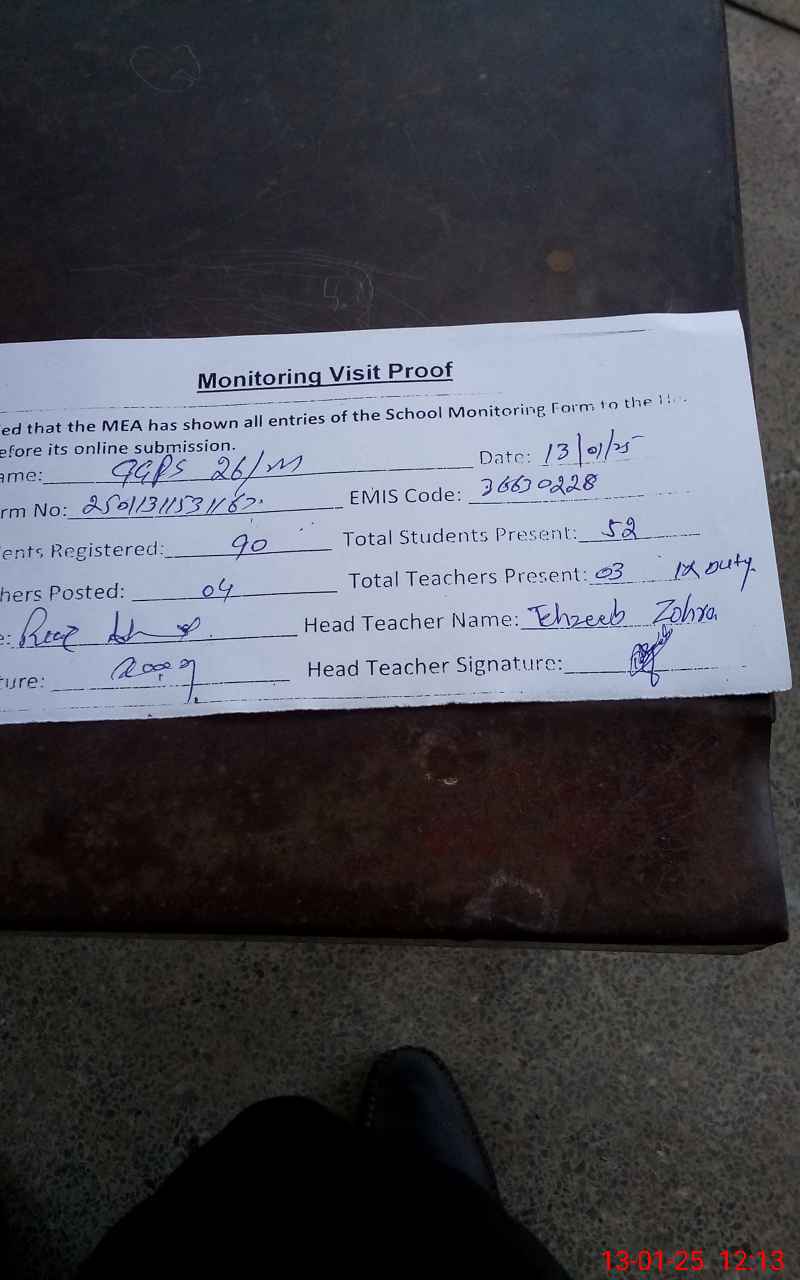 Monitoring Visit Proof
ed that the MEA has shown all entries of the School Monitoring Form to the
efore its online submission.
ame: GGPS 26/M Date: 13/01/25
rm No: EMIS Code: 36630228
ents Registered: 90 Total Students Present: 52
hers Posted: 04 Total Teachers Present: 03 1x Duty.
e: Head Teacher Name: Tehzeeb Zohra
ture: Head Teacher Signature:
13-01-25 12:13